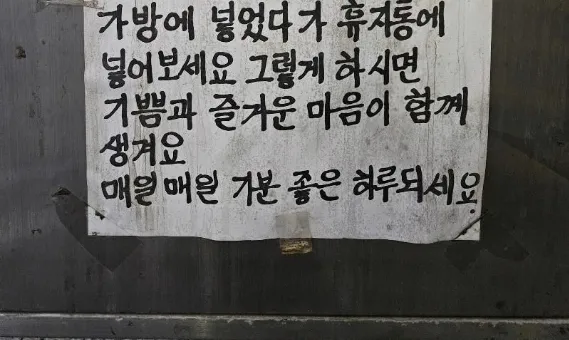 가방에 넣었다가 휴지통에
넣어보세요 그렇게 하시면
기쁨과 즐거운 마음이 함께
생겨요
매일매일 기분 좋은 하루되세요.